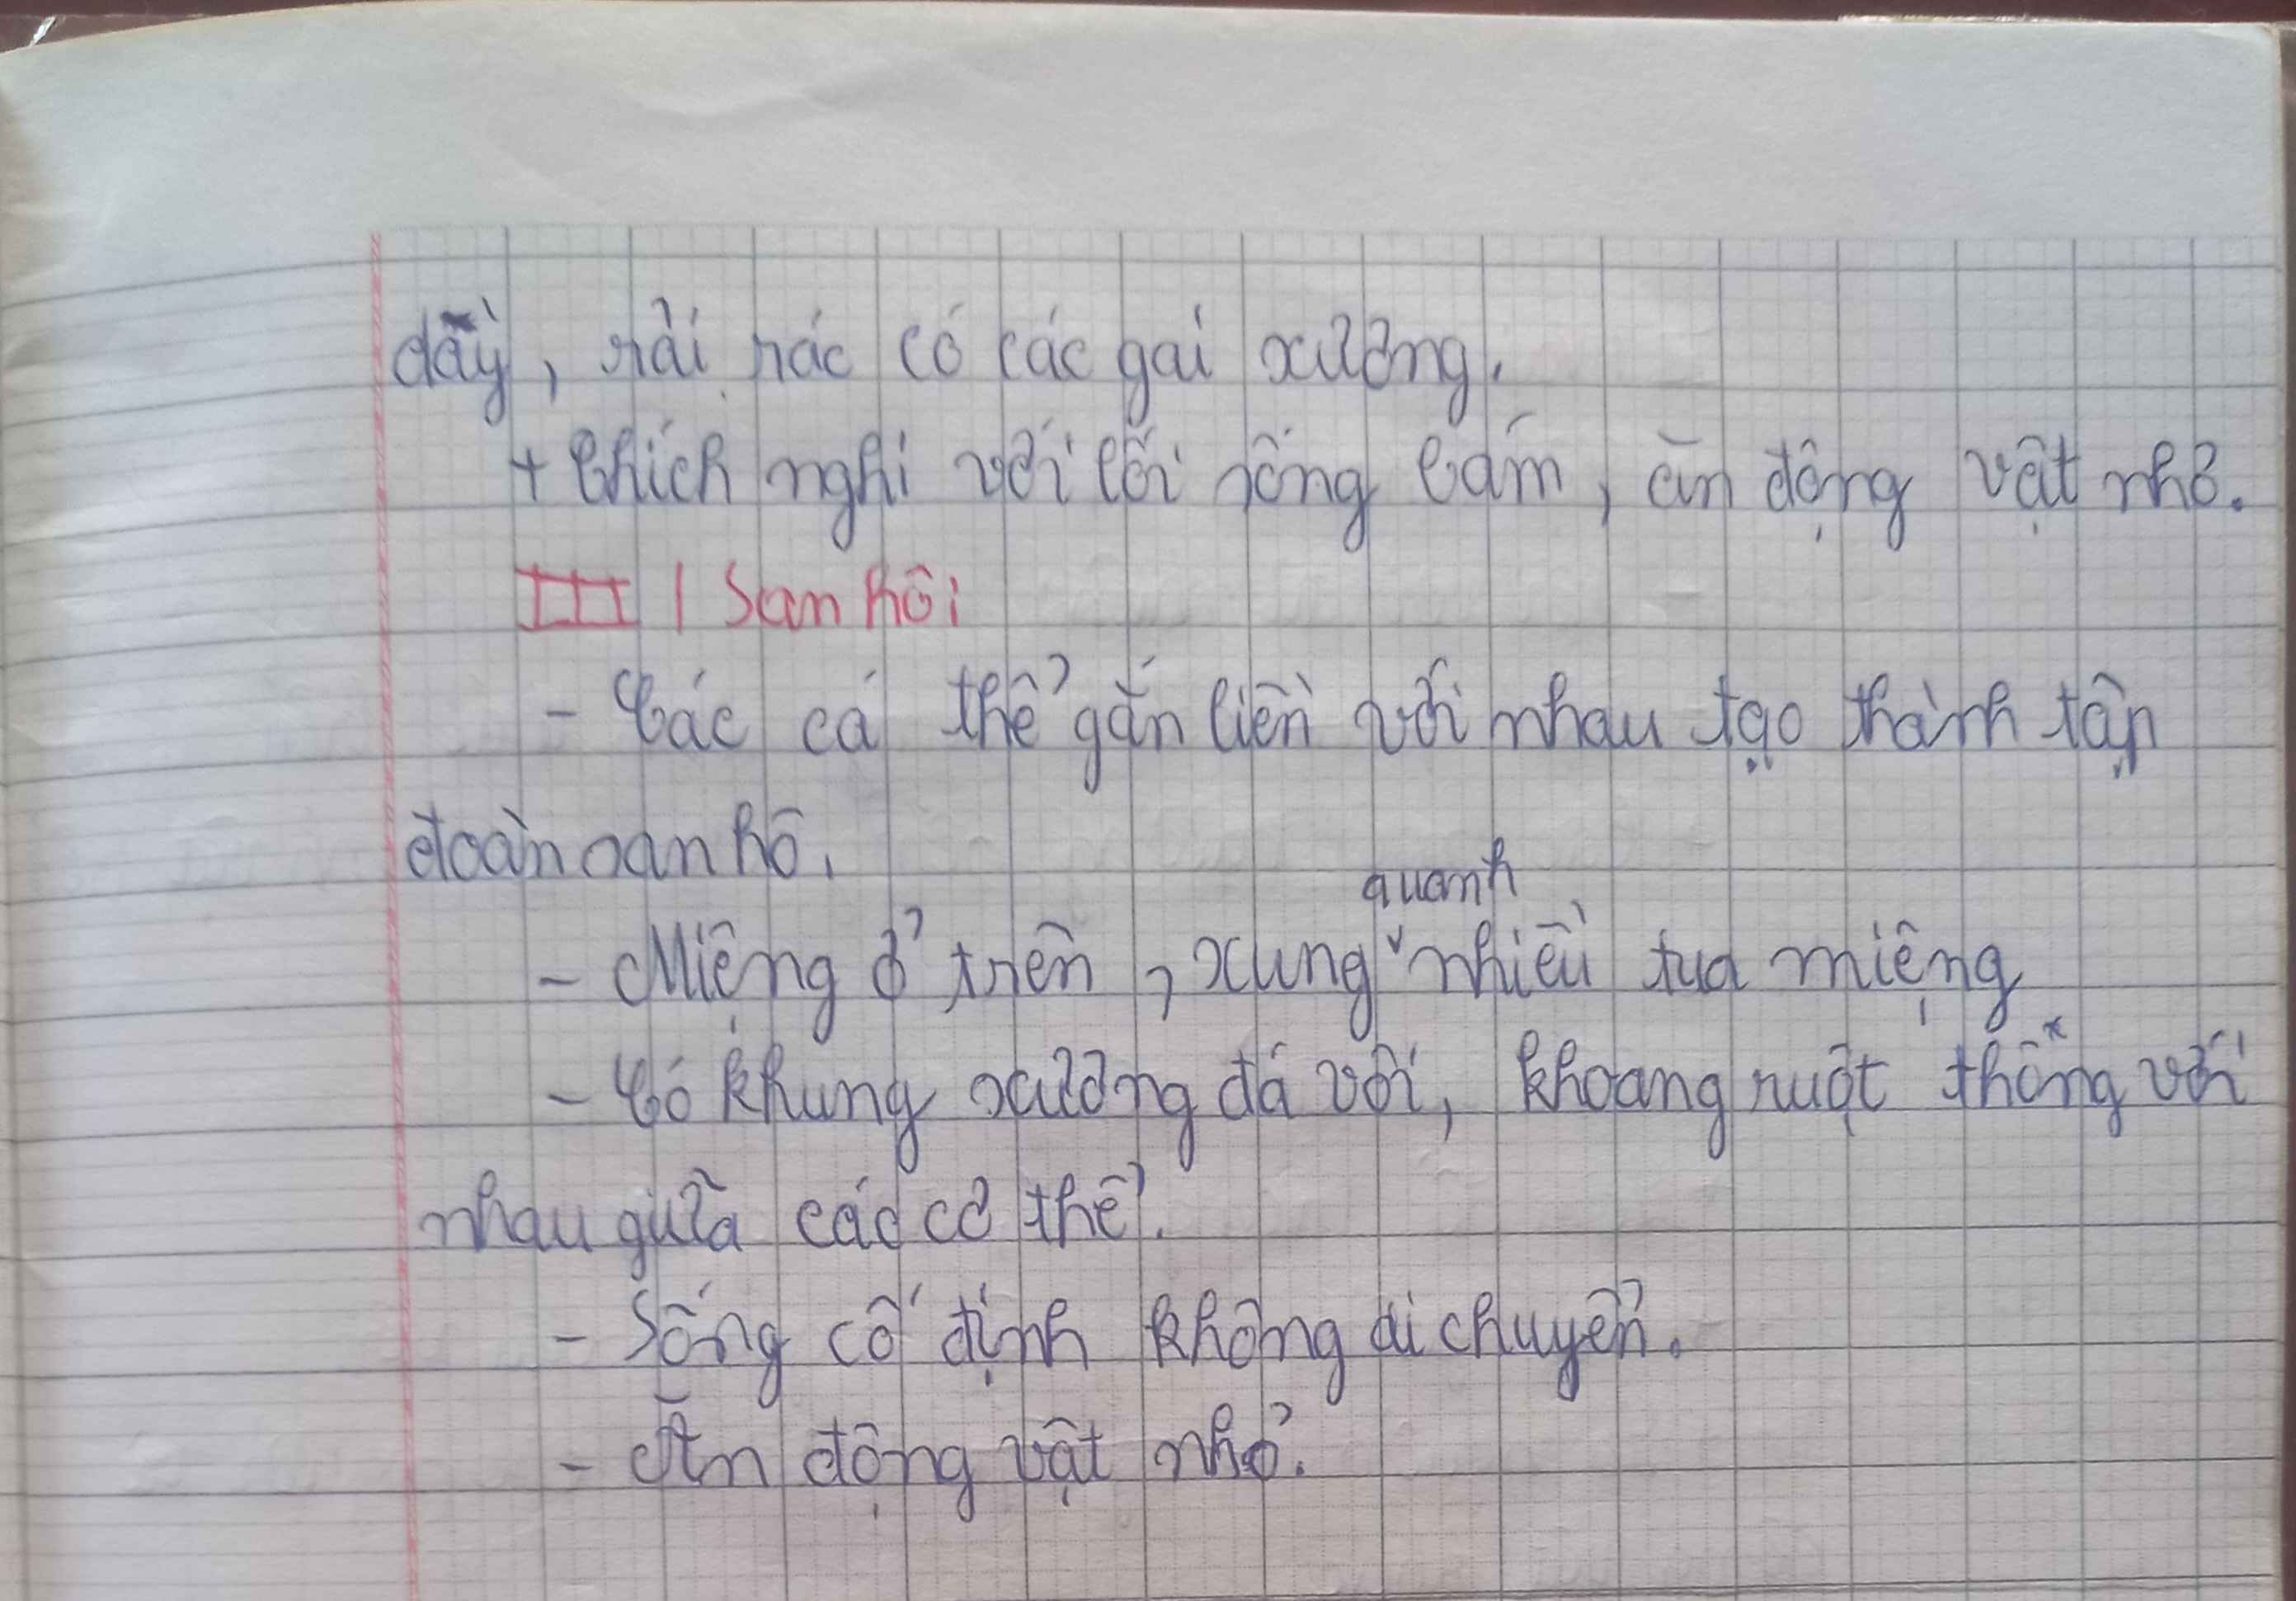 dầy, rải rác có các gai xương.
+ thích nghi với lối sống bám, ăn động vật nhỏ.
III / San hô:
- Các cá thể gắn liền với nhau tạo thành tập
đoàn san hô.
- Miệng ở trên, xung quanh nhiều tua miệng
- Có khung xương đá vôi, khoang ruột thông với
nhau giữa các cơ thể.
- Sống cố định không di chuyển.
- Ăn động vật nhỏ.